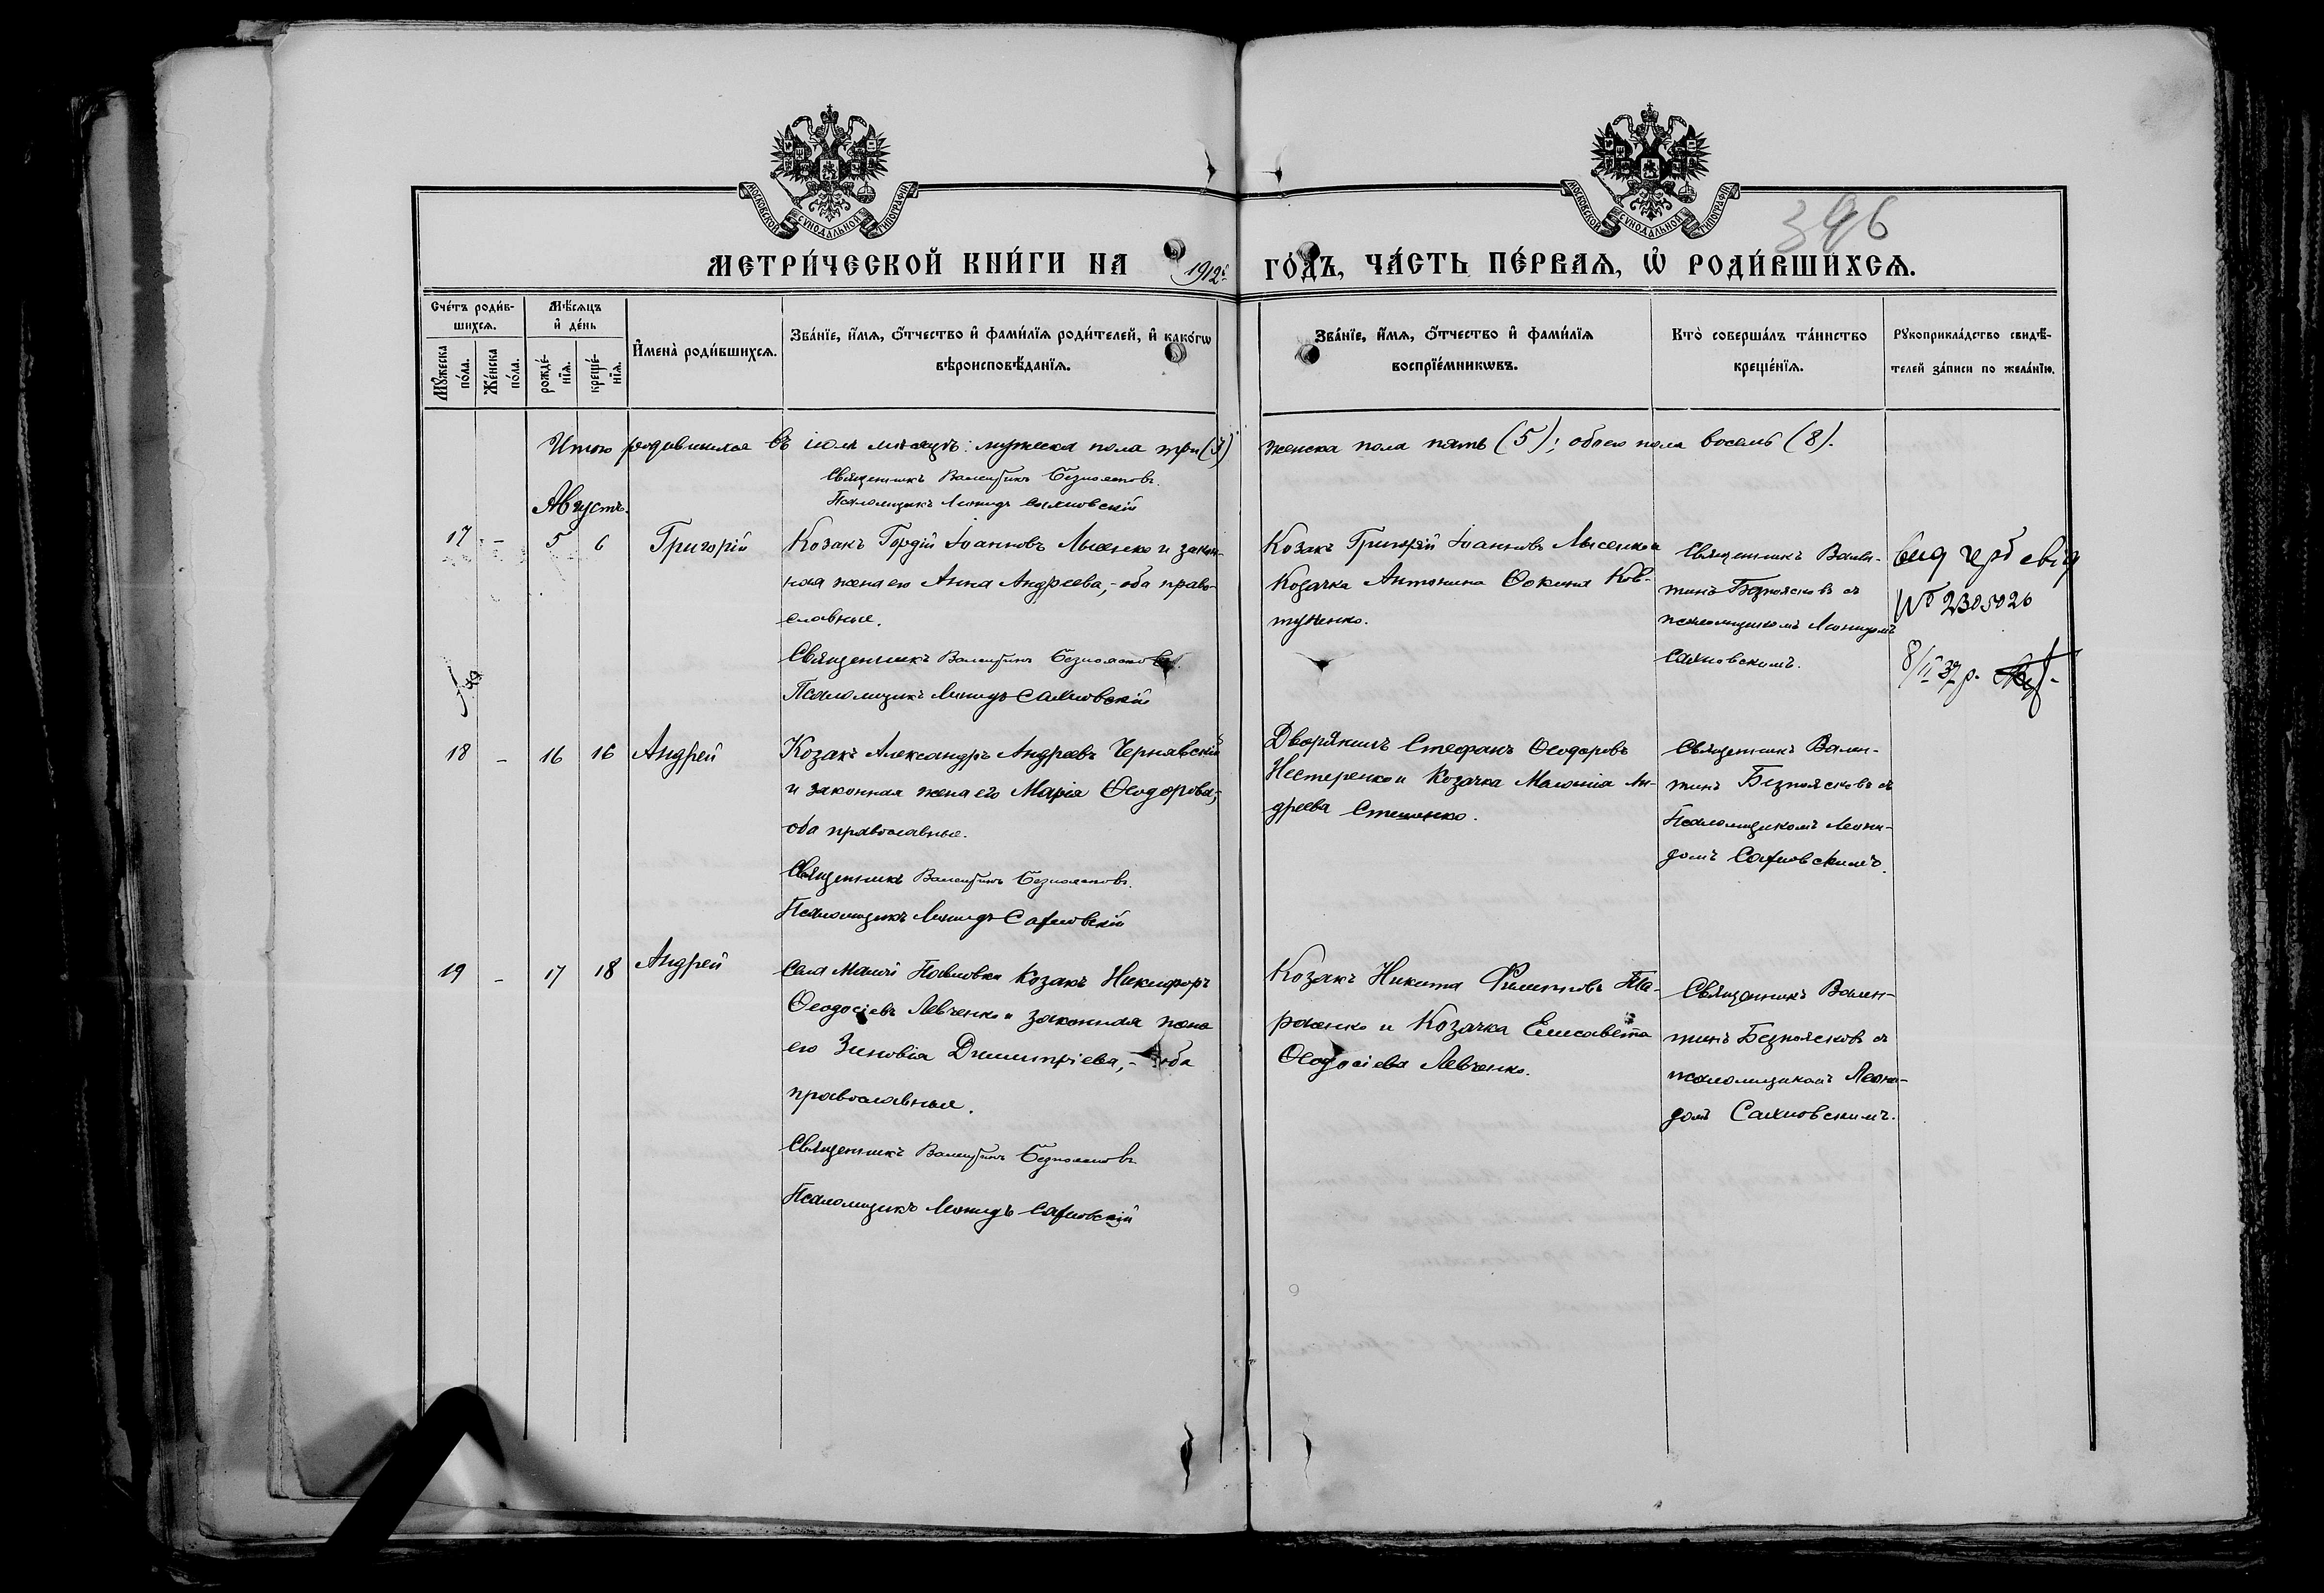 МОСКОВСКОЙ СѴНОДАЛЬНОЙ ТИПОГРАФІИ
МОСКОВСКОЙ СѴНОДАЛЬНОЙ ТИПОГРАФІИ
396
МЕТРИ́ЧЕСКОЙ КНИ́ГИ НА 1912й ГО́ДЪ, ЧА́СТЬ ПЕ́РВАѦ, Ѡ҆ РОДИ́ВШИХСѦ.
Сче́тъ роди́в-
шихсѧ.
Мꙋ́жеска
по́ла.
Же́нска
по́ла.
Мѣ́сѧцъ
и҆ де́нь
рожде́-
нїѧ.
креще́-
нїѧ.
И҆мена̀ роди́вшихсѧ.
Зва́нїе, и҆́мѧ, ѻ҆́тчество и҆ фами́лїѧ роди́телей, и҆ како́гѡ
вѣроисповѣ́данїѧ.
Зва́нїе, и҆́мѧ, ѻ҆́тчество и҆ фами́лїѧ
воспрїе́мникѡвъ.
Кто̀ соверша́лъ та́инство
креще́нїѧ.
Рꙋкоприкла́дство свидѣ́-
телей за́писи по жела́нїю.
Итого родившихся въ іюлѣ мѣсяцѣ: мужеска пола три (3) женска пола пять (5); обоего пола восемь (8).
Священникъ Валентинъ Безпоясковъ.
Псаломщикъ Леонидъ Сахновскій
Августъ.
17 - 5 6 Григорій
Козакъ Гордій Іоанновъ Лысенко и закон-
ная жена его Анна Андреева,- оба право-
славные.
Священникъ Валентинъ Безпоясковъ.
Псаломщикъ Леонидъ Сахновскій
Козакъ Григорій Іоанновъ Лысенко и
Козачка Антонина Фокина Ков-
туненко.
Священникъ Вален-
тинъ Безпоясковъ съ
псаломщикомъ Леонидомъ
Сахновскимъ.
свід
№ 2305026
8/II 37 р.
18 - 16 16 Андрей
Козакъ Александръ Андреевъ Чернявскій
и законная жена его Марія Ѳеодорова,-
оба православные.
Священникъ Валентинъ Безпоясковъ.
Псаломщикъ Леонидъ Сахновскій
Дворянинъ Стефанъ Ѳеодоровъ
Нестеренко и Козачка Маланія Ан-
дреева Стешенко.
Священникъ Вален-
тинъ Безпоясковъ съ
Псаломщикомъ Леони-
домъ Сахновскимъ.
19 - 17 18 Андрей
Села Малой Павловки Козакъ Никифоръ
Ѳеодосіевъ Левченко и законная жена
его Зиновія Димитріева,- оба
православные.
Священникъ Валентинъ Безпоясковъ
Псаломщикъ Леонидъ Сахновскій
Козакъ Никита Филипповъ Та-
расенко и Козачка Елисавета
Ѳеодосіева Левченко.
Священникъ Вален-
тинъ Безпоясковъ съ
псаломщикомъ Леони-
домъ Сахновскимъ.